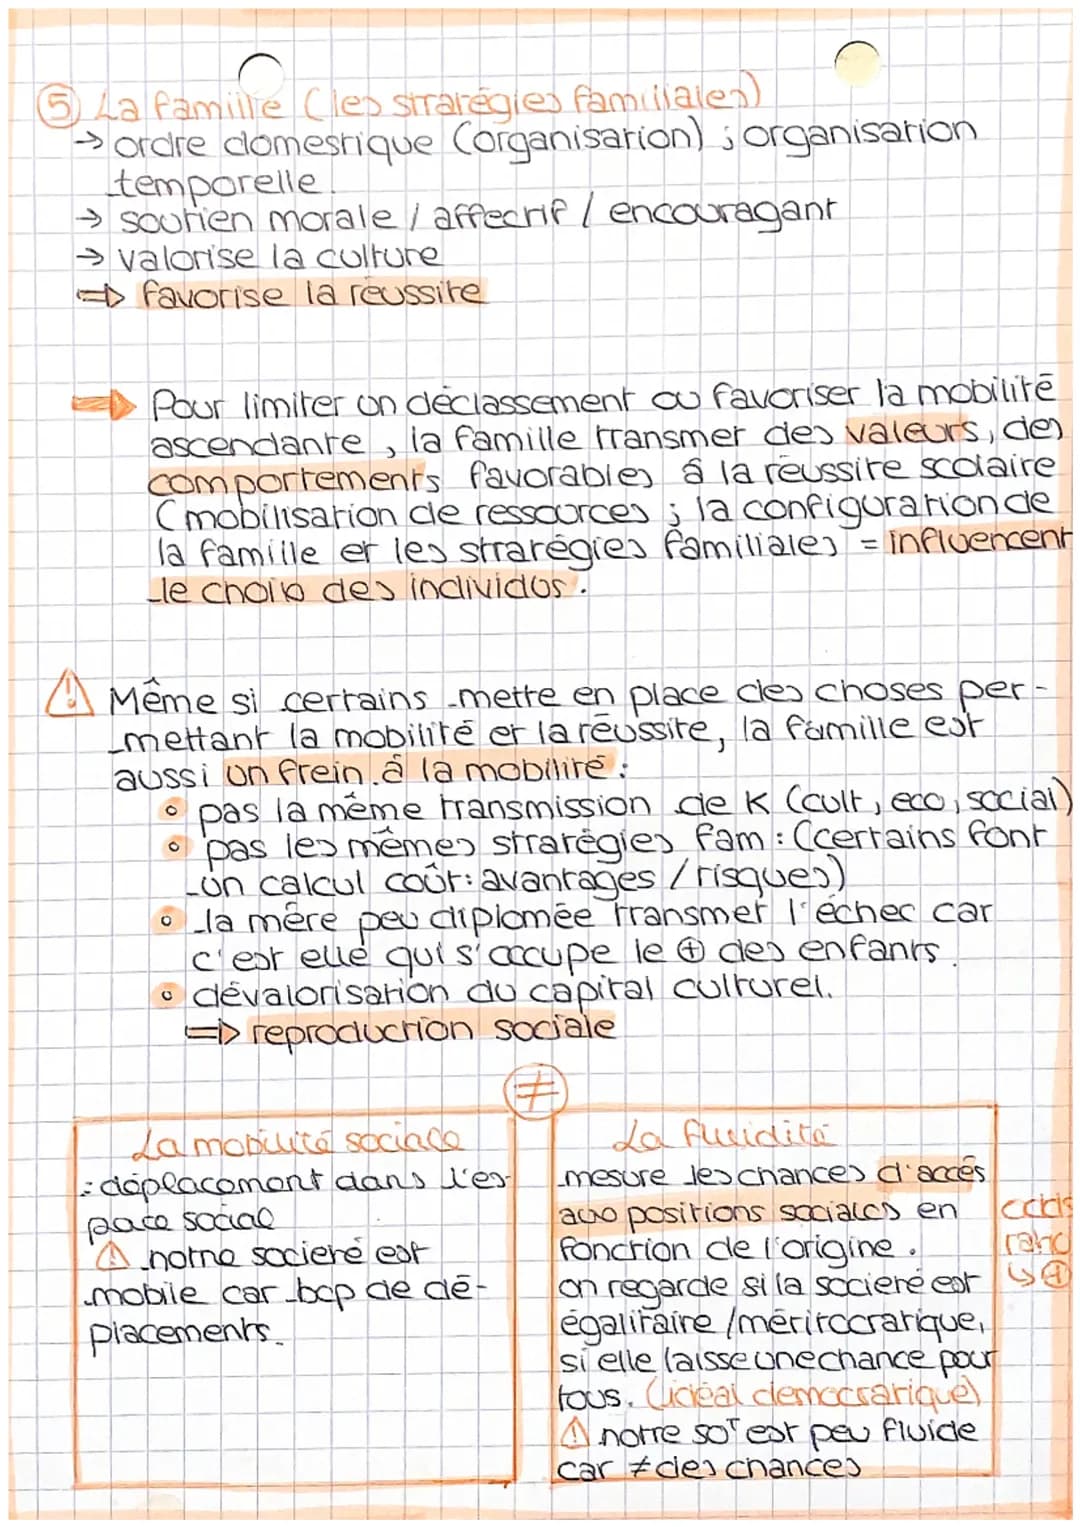 ⑤ La famille (les stratégies familiales)
→ ordre domestique (organisation) ; organisation
temporelle.
→ soutien morale / affectif / encouragant
→ valorise la culture
⇒ favorise la réussite
⇒ Pour limiter un déclassement ou favoriser la mobilité
ascendante, la famille transmet des valeurs, des
comportements favorables à la réussite scolaire
(mobilisation de ressources ; la configuration de
la famille et les stratégies familiales = influencent
le choix des individus.
⚠ Même si certains mette en place des choses per-
mettant la mobilité et la réussite, la famille est
aussi un frein à la mobilité :
• pas la même transmission de K (cult, eco, social)
• pas les mêmes stratégies fam : (certains font
un calcul coût : avantages / risques)
• la mère peu diplomée transmet l'échec car
c'est elle qui s'occupe le ⊕ des enfants.
• dévalorisation du capital culturel.
⇒ reproduction sociale
≠
La mobilité sociale
: déplacement dans l'es-
pace social
⚠ notre societé est
mobile car bcp de dé-
placements.
La fluidité
mesure les chances d'accés
aux positions sociales en
fonction de l'origine.
on regarde si la societé est
égalitaire / méritocratique,
si elle laisse une chance pour
tous. (idéal democratique)
⚠ notre soT est peu fluide
car ≠ des chances
↳ ⊕